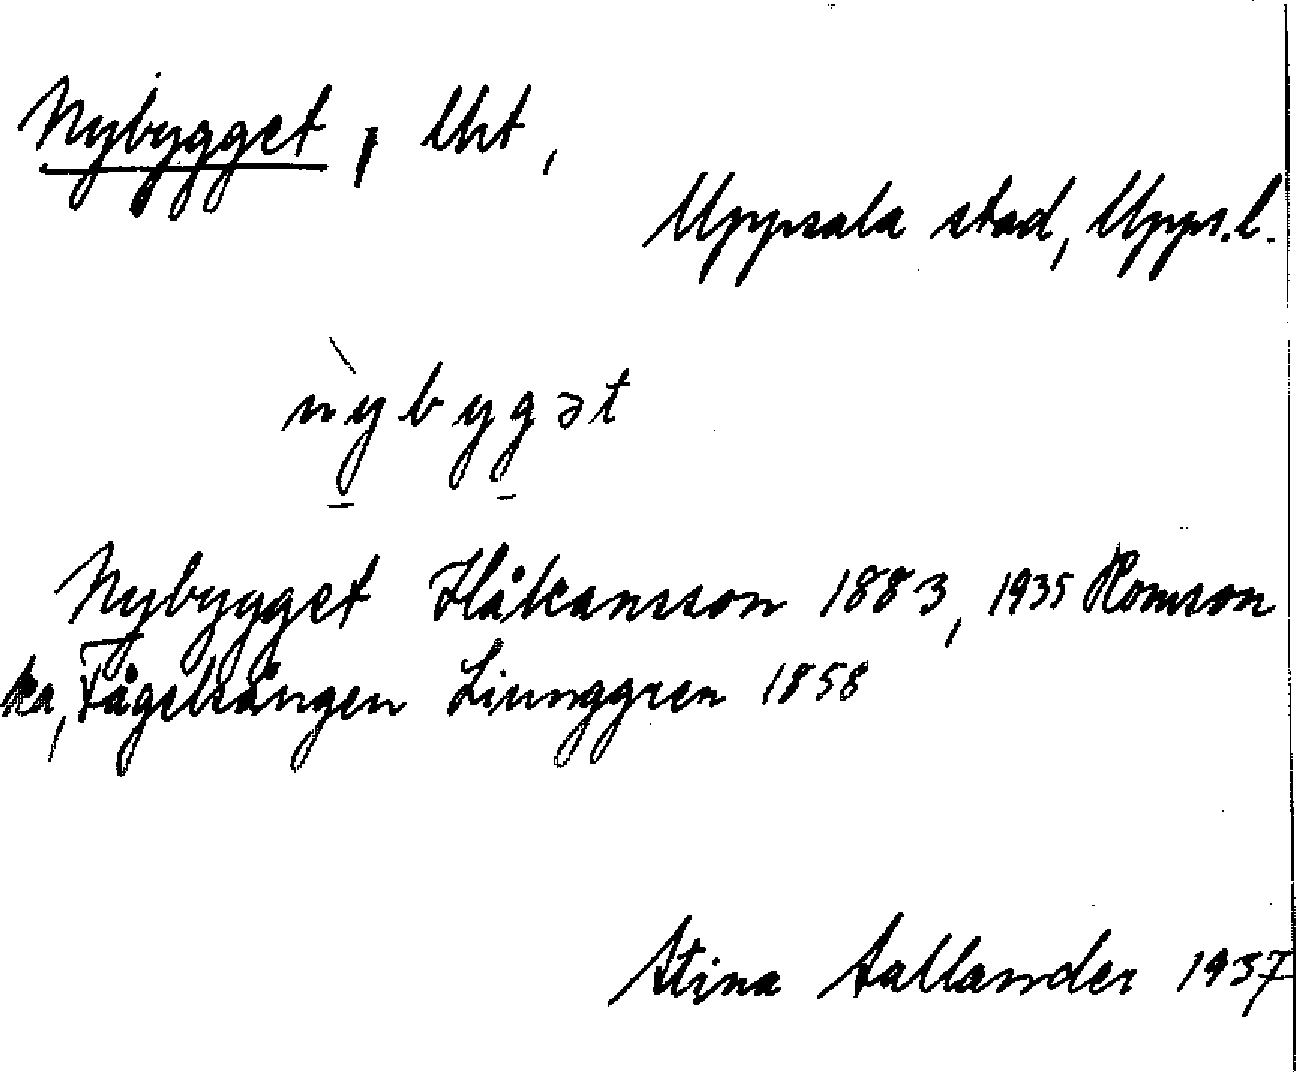 Nybygget, lht,
Uppsala stad, Upps.l.
nỳ̠byg̠ət
Nybygget Håkansson 1883, 1935 Romson
ka, Fågelsången Liunggren 1858
Stina Sallander 1937